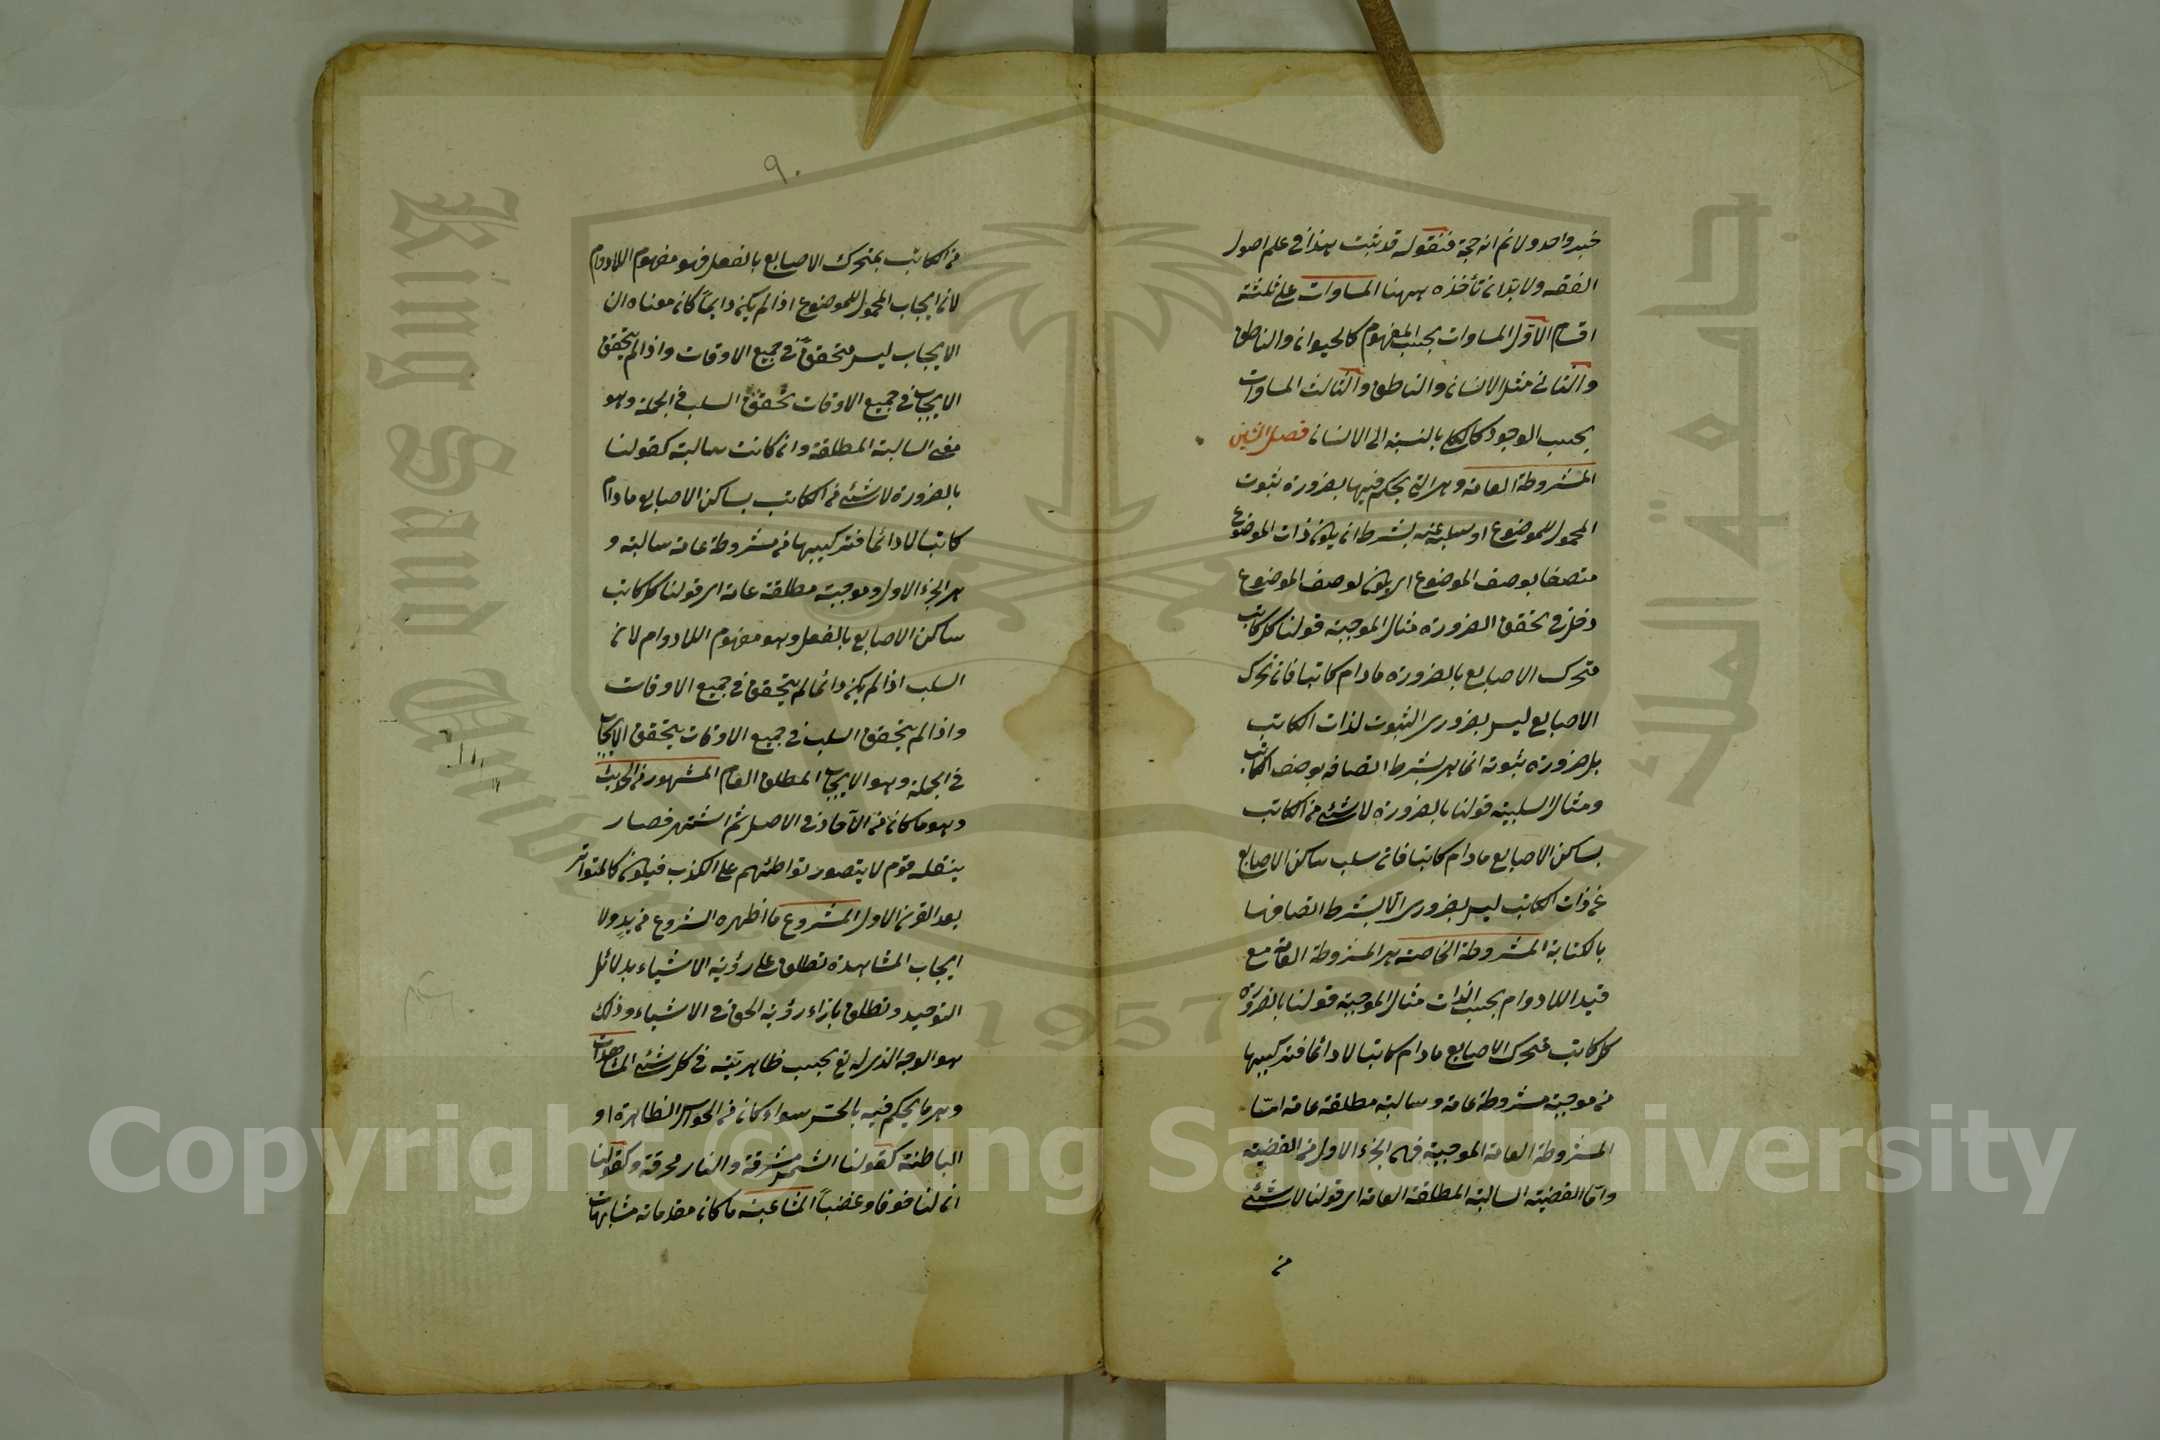 خبر واحد ولانم انه حجة فنقوله قد يثبت هذا في علم اصول
الفقه ولا بد ان تأخذه ههنا المساوات على ثلثة
اقسام الاول المساوات بحسب المفهوم كالحيوان والناطق
والثاني مثل الانسان والناطق والثالث المساوات
بحسب الوجود كالكل بالنسبة الى الانسان فصل الشين
المشروطة العامة وهي التي يحكم فيها بضرورة ثبوت
المحمول للموضوع او سلبه عنه بشرط ان يكون ذات الموضوع
متصفا بوصف الموضوع اي يكون لوصف الموضوع
دخل في تحقق الضرورة مثال الموجبة قولنا كل كاتب
متحرك الاصابع بالضرورة مادام كاتبا فان تحرك
الاصابع ليس بضروري الثبوت لذات الكاتب
بل ضرورة ثبوته انما هي بشرط اتصافه بوصف الكاتب
ومثال السلبية قولنا بالضرورة لا شئ من الكاتب
بساكن الاصابع مادام كاتبا فان سلب ساكن الاصابع
عن ذات الكاتب ليس بضروري الا بشرط اتصافها
بالكتابة المشروطة الخاصة هي المشروطة العامة مع
قيد اللادوام بحسب الذات مثال الموجبة قولنا بالضرورة
كل كاتب متحرك الاصابع مادام كاتبا لا دائما فتركيبها
من موجبة مشروطة عامة وسالبة مطلقة عامة اما
المشروطة العامة الموجبة فهي الجزء الاول من القضية
واما القضية السالبة المطلقة العامة اي قولنا لا شئ
من
٩٠
من الكاتب بمتحرك الاصابع بالفعل فهو مفهوم اللادوام
لان ايجاب المحمول للموضوع اذا لم يكن دايما كان معناه ان
الايجاب ليس متحققا في جميع الاوقات واذا لم يتحقق
الايجاب في جميع الاوقات تحقق السلب في الجملة وهو
معنى السالبة المطلقة وان كانت سالبة كقولنا
بالضرورة لا شئ من الكاتب بساكن الاصابع مادام
كاتبا لا دائما فتركيبها من مشروطة عامة سالبة و
هي الجزء الاول وموجبة مطلقة عامة اي قولنا كل كاتب
ساكن الاصابع بالفعل وهو مفهوم اللادوام لان
السلب اذا لم يكن دائما لم يتحقق في جميع الاوقات
واذا لم يتحقق السلب في جميع الاوقات يتحقق الايجاب
في الجملة وهو الايجاب المطلق العام المشهور من الحديث
وهو ما كان من الآحاد في الاصل ثم اشتهر فصار
ينقله قوم لا يتصور تواطئهم على الكذب فيكون كالمتواتر
بعد القرن الاول المشروع ما اظهره الشروع من ولا
ايجاب المشاهدة تطلق على رؤية الاشياء بدلائل
التوحيد وتطلق بازاء رؤية الحق في الاشياء وذلك
هو الوجه الذي له تع بحسب ظاهريته في كل شئ المشاهدات
وهي ما يحكم فيه بالحس سواء كان من الحواس الظاهرة او
الباطنة كقولنا الشمس مشرقة والنار محرقة وكقولنا
ان لنا خوفا وغضبا المشاغبة ما كان مقدماته مشابهات
King Saud University
جامعة الملك
1957
Copyright © King Saud University